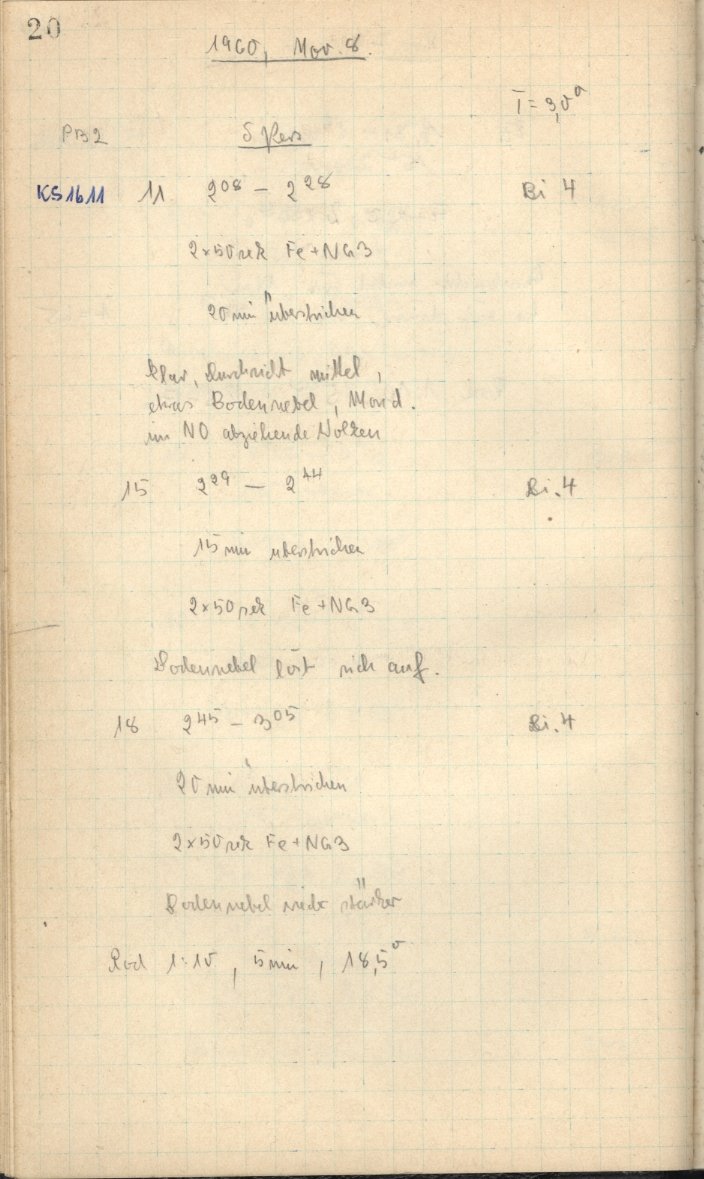 20
1960, Nov. 8.
T = 3,0°
PB2 S Pers
KS1611 11 2⁰⁸ – 2²⁸ Bi 4
2×50 sek Fe+NG3
20 min überstrichen
klar, Durchsicht mittel,
etwas Bodennebel, Mond.
im NO abziehende Wolken
15 2²⁹ – 2⁴⁴ Bi. 4
15 min überstrichen
2×50 sek Fe+NG3
Bodennebel löst sich auf.
18 2⁴⁵ – 3⁰⁵ Bi. 4
20 min überstrichen
2×50 sek Fe+NG3
Bodennebel stärker
Rod 1:10, 5 min, 18,5°